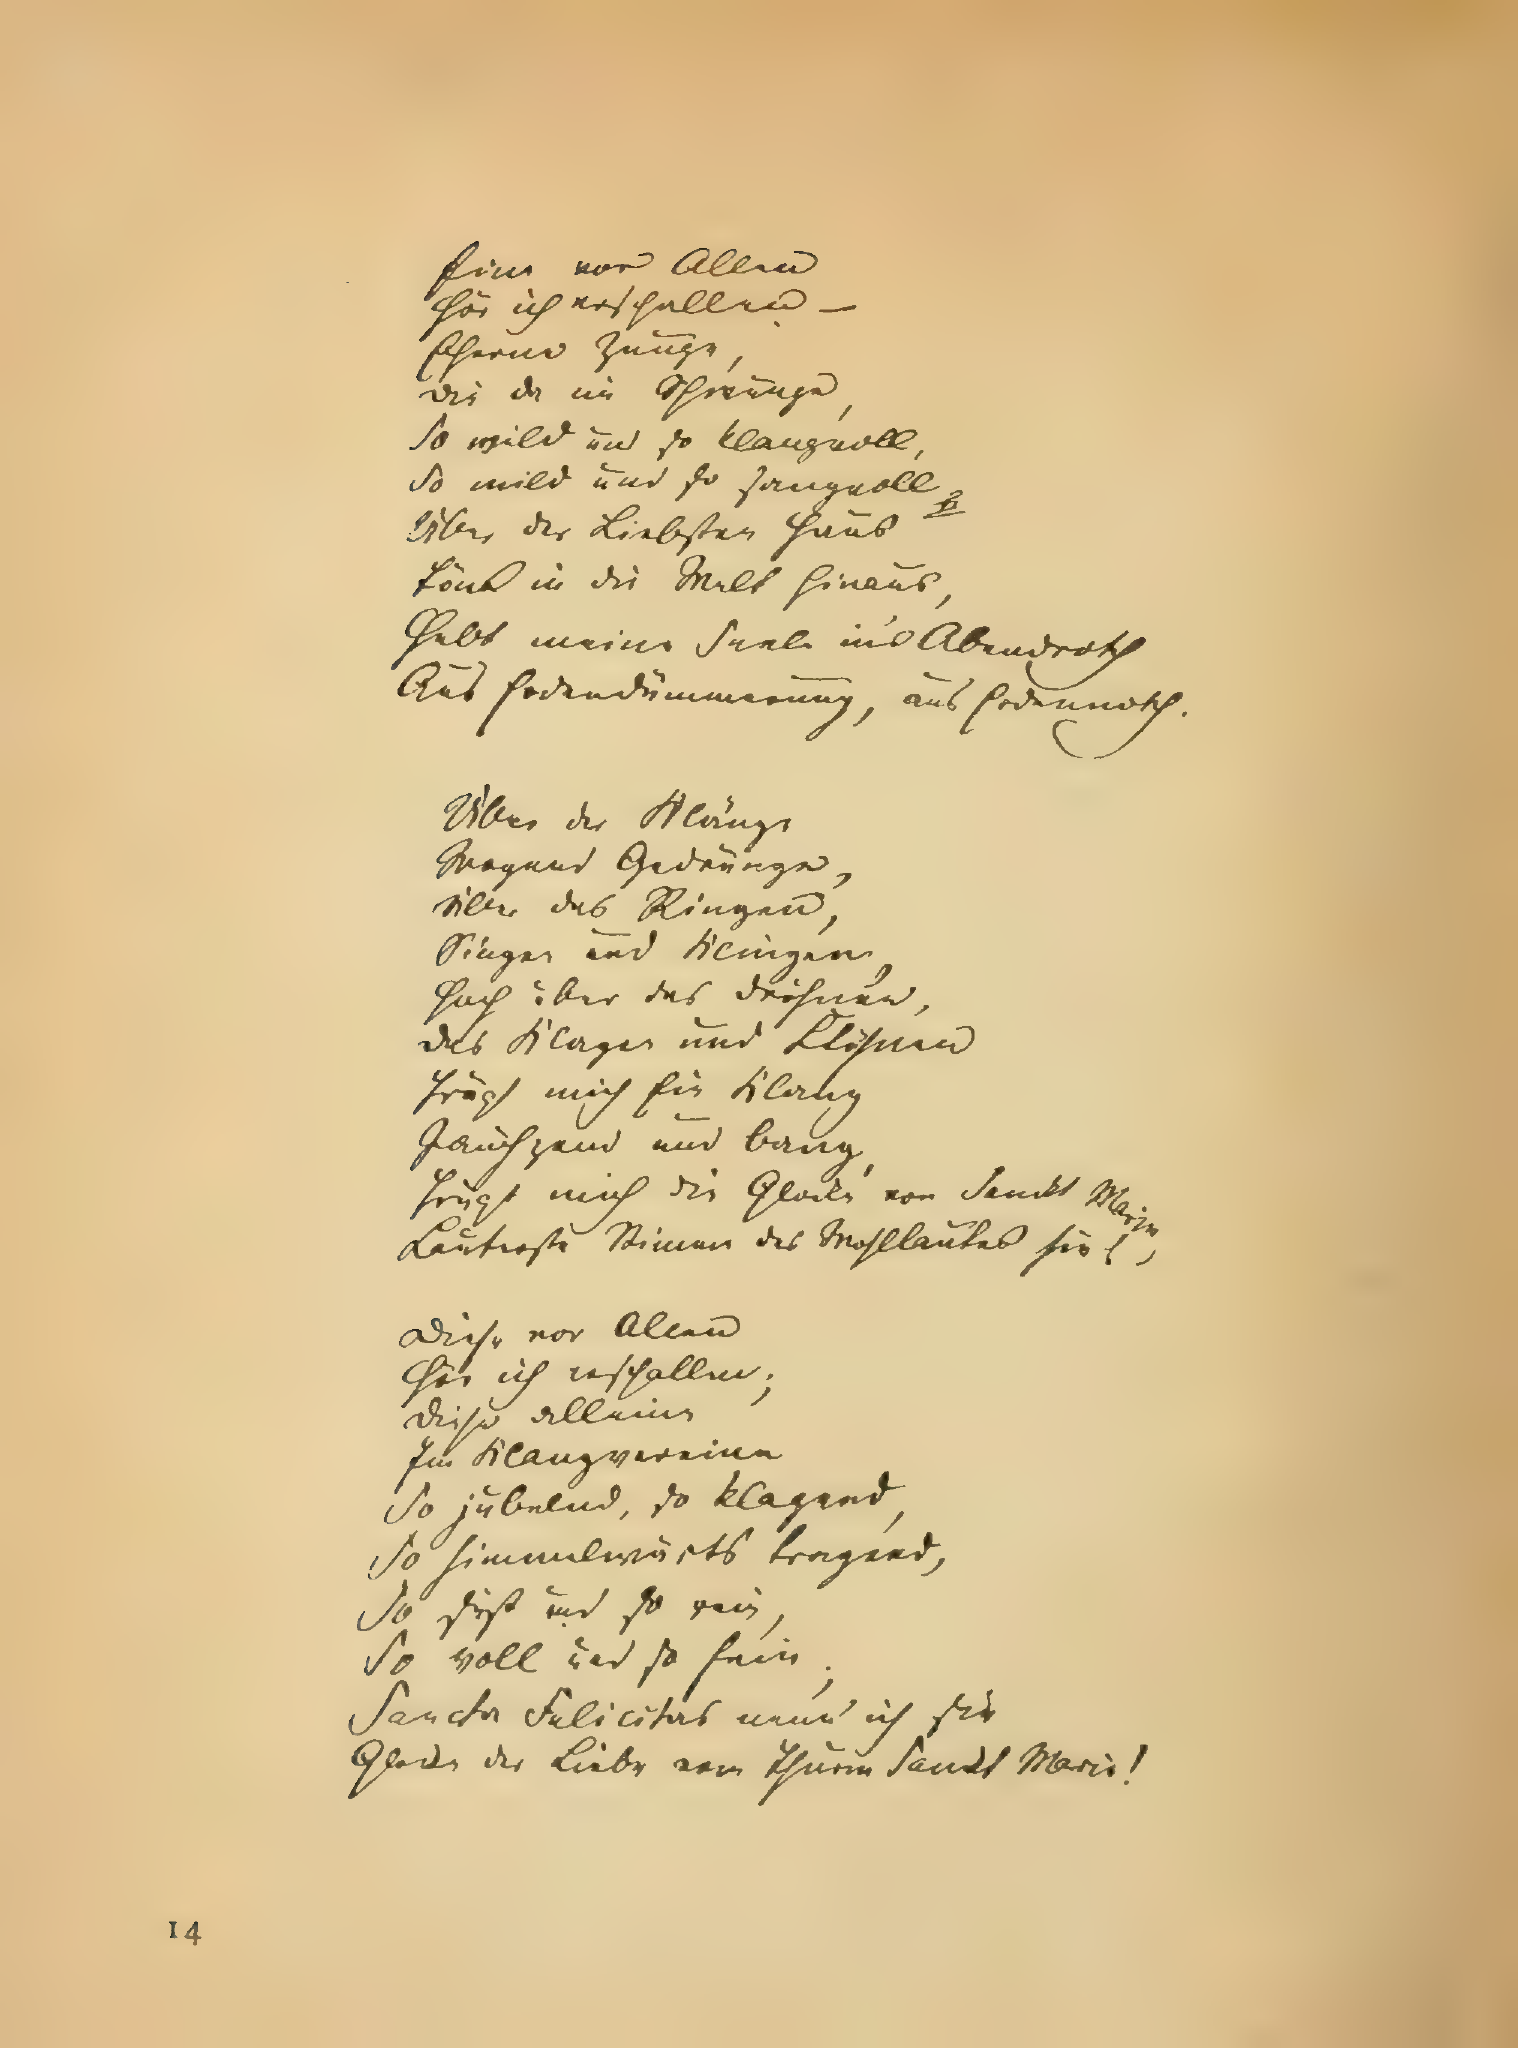 Eine vor Allen
Hör ich erschallen —
Eherne Zunge,
Die da im Schwunge,
So wild und so klangvoll,
So mild und so sangvoll
Über der Liebsten Haus
Tönt in die Welt hinaus,
Hebt meine Seele in's Abendroth
Aus Erdendämmerung, aus Erdennoth.
Über der Klänge
Wogend Gedränge,
Über das Ringen,
Singen und Klingen,
Hoch über das Dröhnen,
Das Klagen und Stöhnen
Trägt mich Ein Klang
Jauchzend und bang,
Trägt mich die Glocke von Sankt Marie,
Lauterste Stimme des Wohllautes sie!
Diese vor Allen
Hör ich erschallen;
Diese alleine
Im Klangvereine
So jubelnd, so klagend,
So himmelwärts tragend,
So süß und so rein,
So voll und so fein;
Sancta Felicitas nenn' ich sie
Glocke der Liebe vom Thurm Sankt Marie!
14